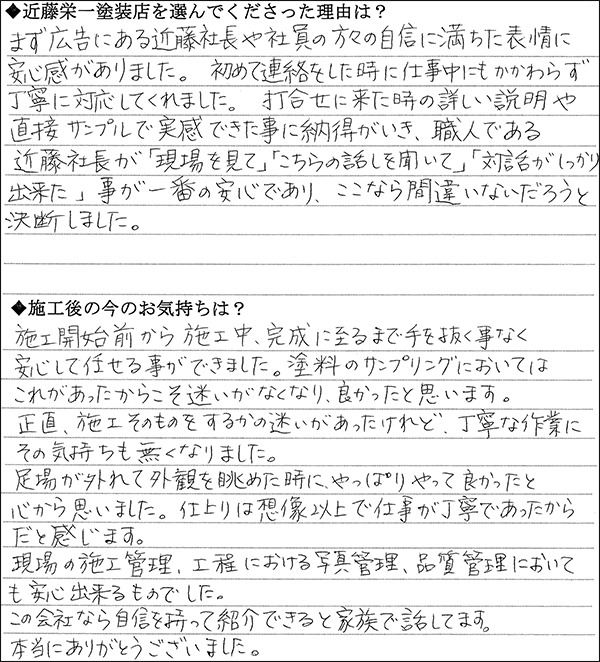 ◆近藤栄一塗装店を選んでくださった理由は？
まず広告にある近藤社長や社員の方々の自信に満ちた表情に
安心感がありました。 初めて連絡をした時に仕事中にもかかわらず
丁寧に対応してくれました。 打合せに来た時の詳しい説明や
直接サンプルで実感できた事に納得がいき、職人である
近藤社長が「現場を見て」「こちらの話しを聞いて」「対話がしっかり
出来た」事が一番の安心であり、ここなら間違いないだろうと
決断しました。
◆施工後の今のお気持ちは？
施工開始前から施工中、完成に至るまで手を抜く事なく
安心して任せる事ができました。塗料のサンプリングにおいては
これがあったからこそ迷いがなくなり、良かったと思います。
正直、施工そのものをするかの迷いがあったけれど、丁寧な作業に
その気持ちも無くなりました。
足場が外れて外観を眺めた時に、やっぱりやって良かったと
心から思いました。仕上りは想像以上で仕事が丁寧であったから
だと感じます。
現場の施工管理、工程における写真管理、品質管理において
も安心出来るものでした。
この会社なら自信を持って紹介できると家族で話してます。
本当にありがとうございました。